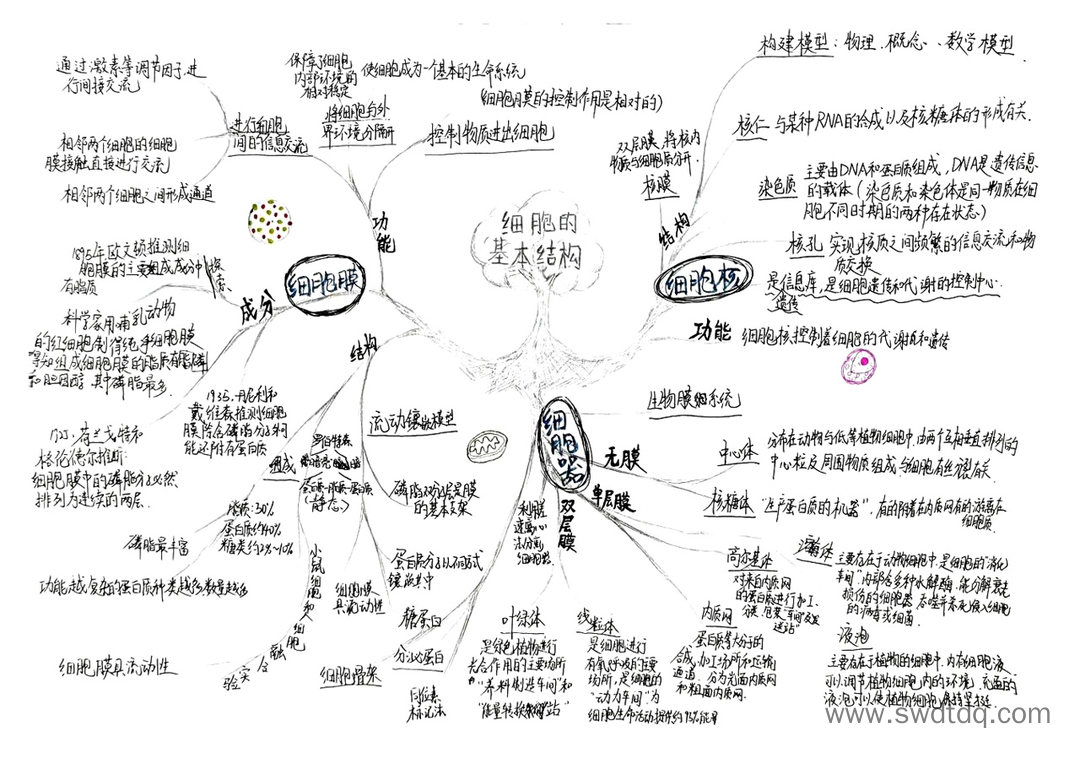 细胞的
基本结构
细胞膜
功能
将细胞与外
界环境分隔开
保障了细胞
内部环境的
相对稳定
使细胞成为一个基本的生命系统
控制物质进出细胞
(细胞膜的控制作用是相对的)
进行细胞
间的信息交流
通过激素等调节因子,进
行间接交流
相邻两个细胞的细胞
膜接触直接进行交流
相邻两个细胞之间形成通道
成分
探索
1895年欧文顿推测细
胞膜的主要组成成分中
有脂质
科学家用哺乳动物
的红细胞制得纯净细胞膜
得知组成细胞膜的脂质有磷脂
和胆固醇,其中磷脂最多.
荷兰戈特和
格伦德尔推断:
细胞膜中的磷脂分子必然
排列为连续的两层.
1935,丹尼利和
戴维森推测细胞
膜除含磷脂分子外可
能还附有蛋白质
组成
脂质:50%
蛋白质约40%
糖类约2%~10%
磷脂最丰富
功能越复杂的蛋白质种类越多数量越多
结构
蛋白质-脂质-蛋白质
(静态)
小鼠细胞和人细胞融合实验
细胞膜具流动性
流动镶嵌模型
磷脂双分子层是膜
的基本支架
蛋白质分子以不同方式
镶嵌其中
细胞膜
具流动性
糖蛋白
细胞器
利用
差速离心
法分离
细胞器
分泌蛋白
同位素
标记法
细胞骨架
双层膜
叶绿体
是绿色植物进行
光合作用的主要场所
"养料制造车间"和
"能量转换站"
线粒体
是细胞进行
有氧呼吸的主要
场所,是细胞的
"动力车间"为
细胞生命活动提供约95%能量
单层膜
内质网
蛋白质等大分子的
合成,加工场所和运输
通道,分为光面内质网
和粗面内质网.
高尔基体
对来自内质网
的蛋白质进行加工、
分类、包装"车间"及"发
送站"
溶酶体
主要存在于动物细胞中,是细胞的"消化
车间"内部含多种水解酶,能分解衰老
损伤的细胞器,吞噬并杀死侵入细胞
的病毒或细菌.
液泡
主要存在于植物的细胞中,内有细胞液
可以调节植物细胞内的环境,充盈的
液泡可以使植物细胞保持坚挺
无膜
中心体
分布在动物与低等植物细胞中,由两个互相垂直排列的
中心粒及周围物质组成,与细胞有丝分裂有关
核糖体
"生产蛋白质的机器",有的附着在内质网有的游离在
细胞质
生物膜系统
细胞核
结构
核膜
双层膜,将核内
物质与细胞质分开.
构建模型:物理、概念、数学模型
核仁 与某种RNA的合成以及核糖体的形成有关.
染色质
主要由DNA和蛋白质组成,DNA是遗传信息
的载体(染色质和染色体是同一物质在细
胞不同时期的两种存在状态)
核孔 实现核质之间频繁的信息交流和物
质交换
是信息库,是细胞遗传和代谢的控制中心.
遗传
功能
细胞核控制着细胞的代谢和遗传
www.swdtdq.com